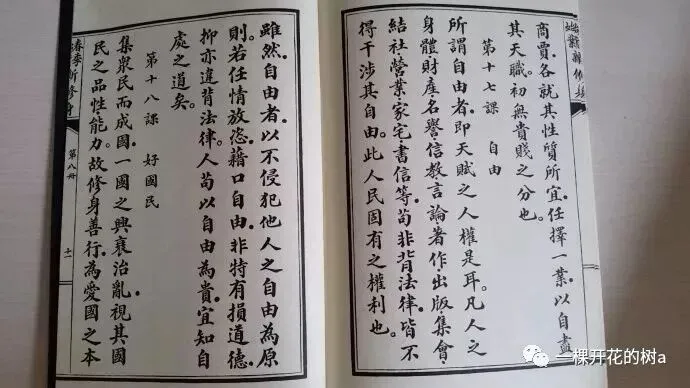 商賈。各就其性質所宜。任擇一業。以自盡
其天職。初無貴賤之分也。
第十七課 自由
所謂自由者。即天賦之人權是耳。凡人之
身體財產。名譽信教。言論著作。出版集會。
結社營業。家宅書信等。苟非背法律。皆不
得干涉其自由。此人民固有之權利也。
雖然。自由者。以不侵犯他人之自由為原
則。若任情放恣。藉口自由。非特有損道德。
抑亦違背法律。人苟以自由為貴。宜知自
處之道矣。
第十八課 好國民
集衆民而成國。一國之興衰治亂。視其國
民之品性能力。故修身善行。為愛國之本
第八冊
十一
一棵开花的树a